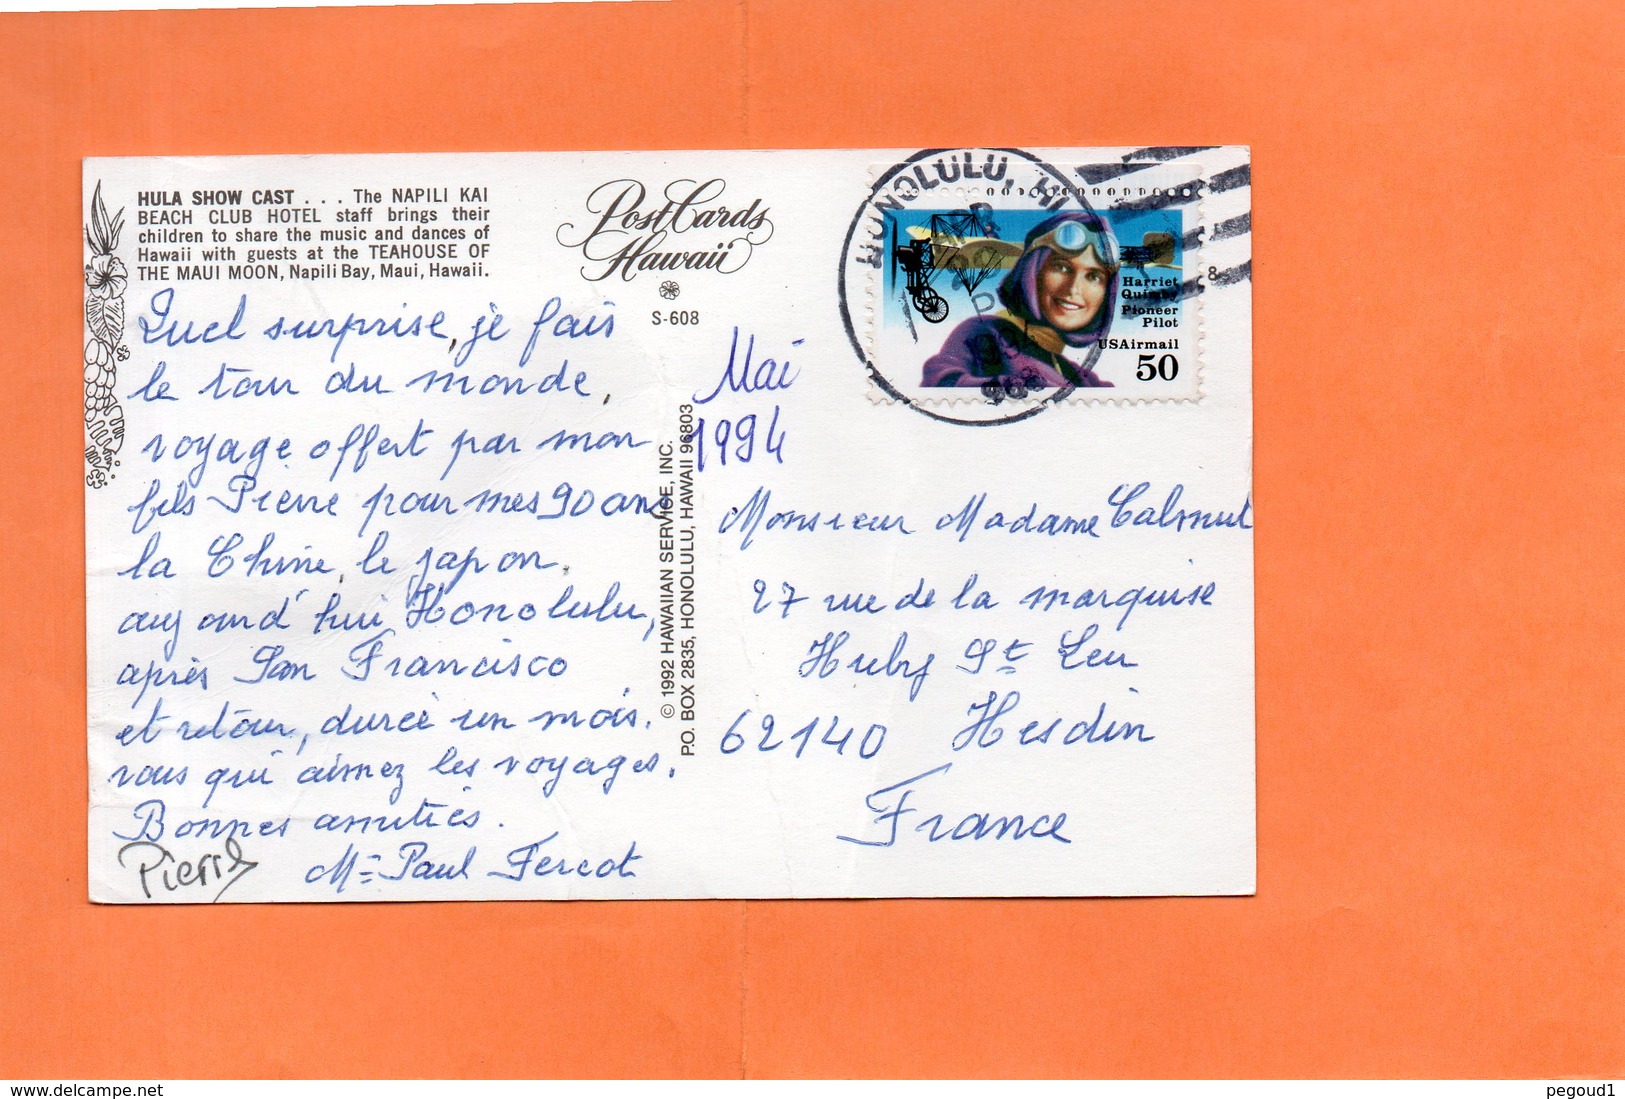 HULA SHOW CAST . . . The NAPILI KAI
BEACH CLUB HOTEL staff brings their
children to share the music and dances of
Hawaii with guests at the TEAHOUSE OF
THE MAUI MOON, Napili Bay, Maui, Hawaii.
PostCards
Hawaii
S-608
HONOLULU, HI
Harriet
Quimby
Pioneer
Pilot
USAirmail
50
8
Quel surprise, je fais
le tour du monde,
voyage offert par mon
fils Pierre pour mes 90 ans
la Chine, le japon,
aujourd'hui Honolulu,
après San Francisco
et retour, durée un mois.
vous qui aimez les voyages.
Bonnes amitiés.
Pierre
M= Paul Fercot
© 1992 HAWAIIAN SERVICE, INC.
P.O. BOX 2835, HONOLULU, HAWAII 96803
Mai
1994
Monsieur Madame
27 rue de la marquise
Huby St Leu
62140 Hesdin
France
pegoud1